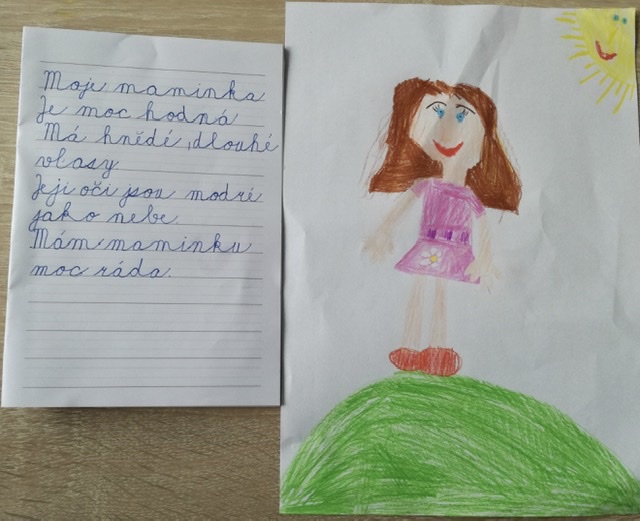 Moje maminka
Je moc hodná
Má hnědé, dlouhé
vlasy.
Její oči jsou modré
jako nebe.
Mám maminku
moc ráda.